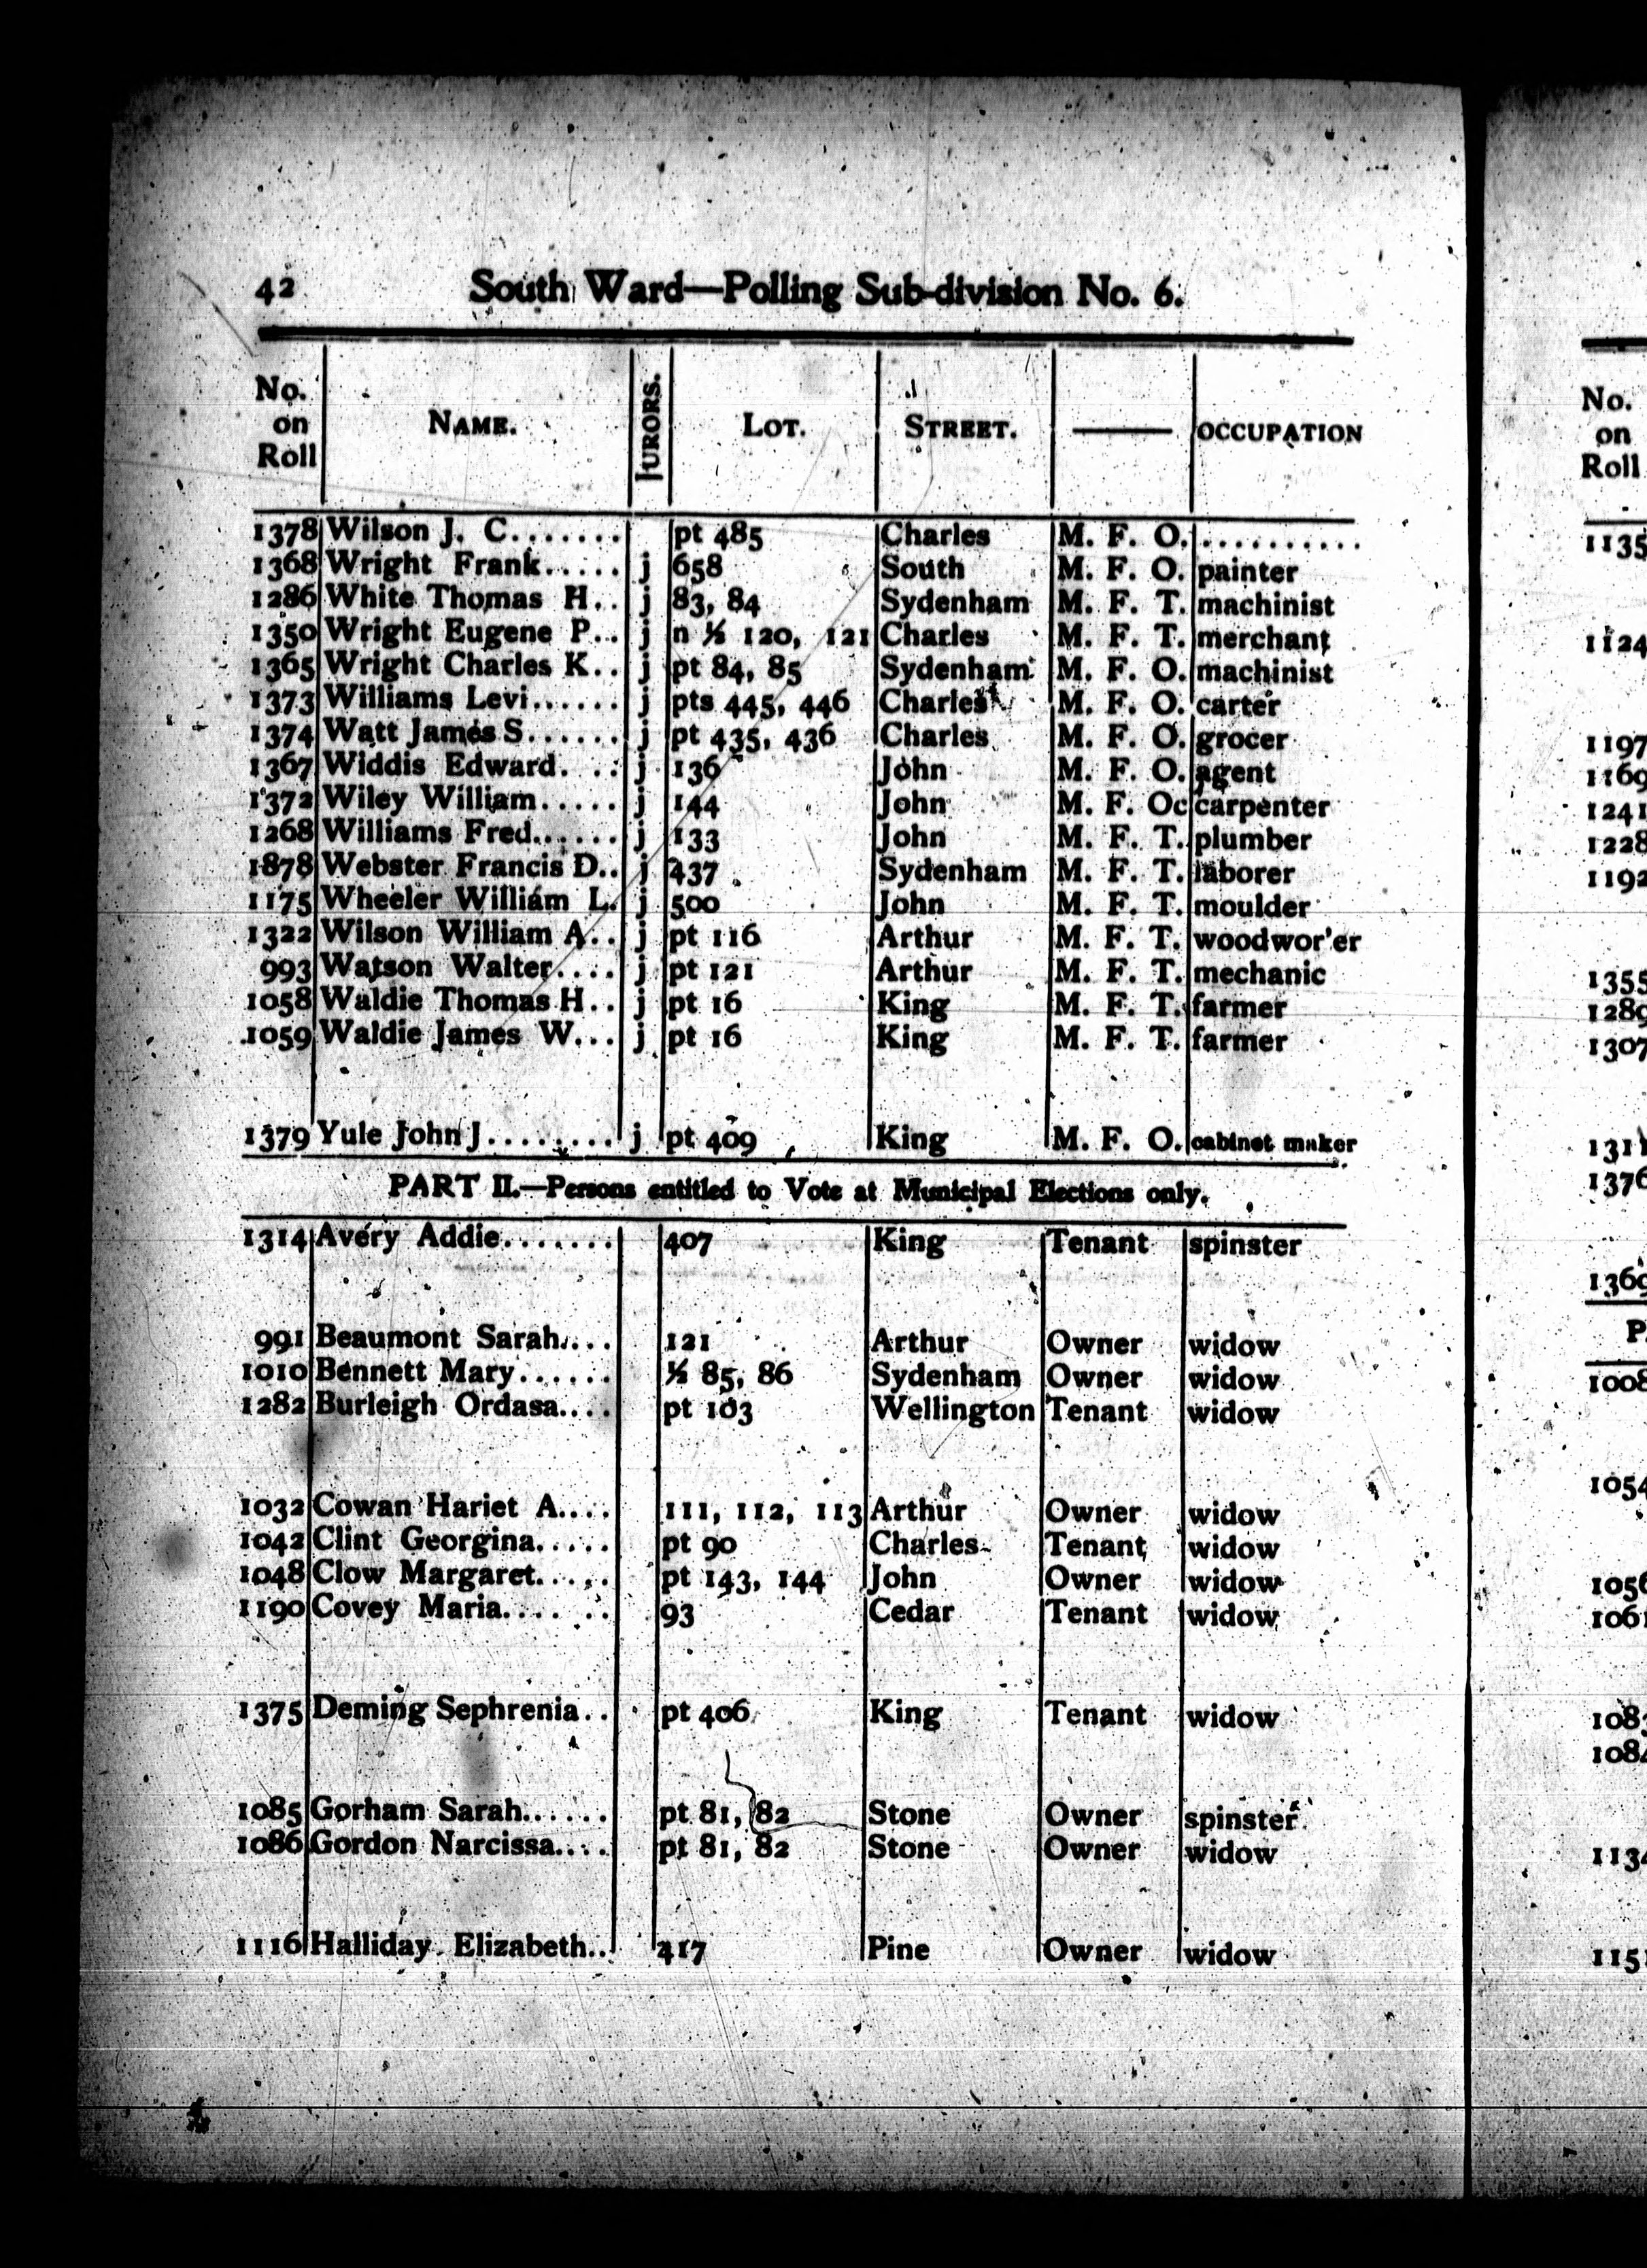 42 South Ward—Polling Sub-division No. 6.
No. on Roll NAME. JURORS. LOT. STREET. —— OCCUPATION
1378 Wilson J. C....... pt 485 Charles M. F. O. ..........
1368 Wright Frank..... j 658 South M. F. O. painter
1286 White Thomas H.. j 83, 84 Sydenham M. F. T. machinist
1350 Wright Eugene P.. j n ½ 120, 121 Charles M. F. T. merchant
1365 Wright Charles K.. j pt 84, 85 Sydenham M. F. O. machinist
1373 Williams Levi...... j pts 445, 446 Charles M. F. O. carter
1374 Watt James S...... j pt 435, 436 Charles M. F. O. grocer
1367 Widdis Edward.... j 136 John M. F. O. agent
1372 Wiley William..... j 144 John M. F. Oc carpenter
1268 Williams Fred...... j 133 John M. F. T. plumber
1878 Webster Francis D.. j 437 Sydenham M. F. T. laborer
1175 Wheeler William L. j 500 John M. F. T. moulder
1322 Wilson William A.. j pt 116 Arthur M. F. T. woodwor'er
993 Watson Walter.... j pt 121 Arthur M. F. T. mechanic
1058 Waldie Thomas H.. j pt 16 King M. F. T. farmer
1059 Waldie James W... j pt 16 King M. F. T. farmer
1379 Yule John J........ j pt 409 King M. F. O. cabinet maker
PART II.—Persons entitled to Vote at Municipal Elections only.
1314 Avery Addie....... 407 King Tenant spinster
991 Beaumont Sarah.... 121 Arthur Owner widow
1010 Bennett Mary...... ½ 85, 86 Sydenham Owner widow
1282 Burleigh Ordasa.... pt 103 Wellington Tenant widow
1032 Cowan Hariet A.... 111, 112, 113 Arthur Owner widow
1042 Clint Georgina..... pt 90 Charles Tenant widow
1048 Clow Margaret..... pt 143, 144 John Owner widow
1190 Covey Maria.... .. 93 Cedar Tenant widow
1375 Deming Sephrenia.. pt 406 King Tenant widow
1085 Gorham Sarah...... pt 81, 82 Stone Owner spinster
1086 Gordon Narcissa.... pt 81, 82 Stone Owner widow
1116 Halliday Elizabeth.. 417 Pine Owner widow
No.
on
Roll
1135
1124
1197
1169
1241
1228
1192
1355
1289
1307
1311
1376
1369
P
1008
1054
1056
1061
108
1084
1134
1151